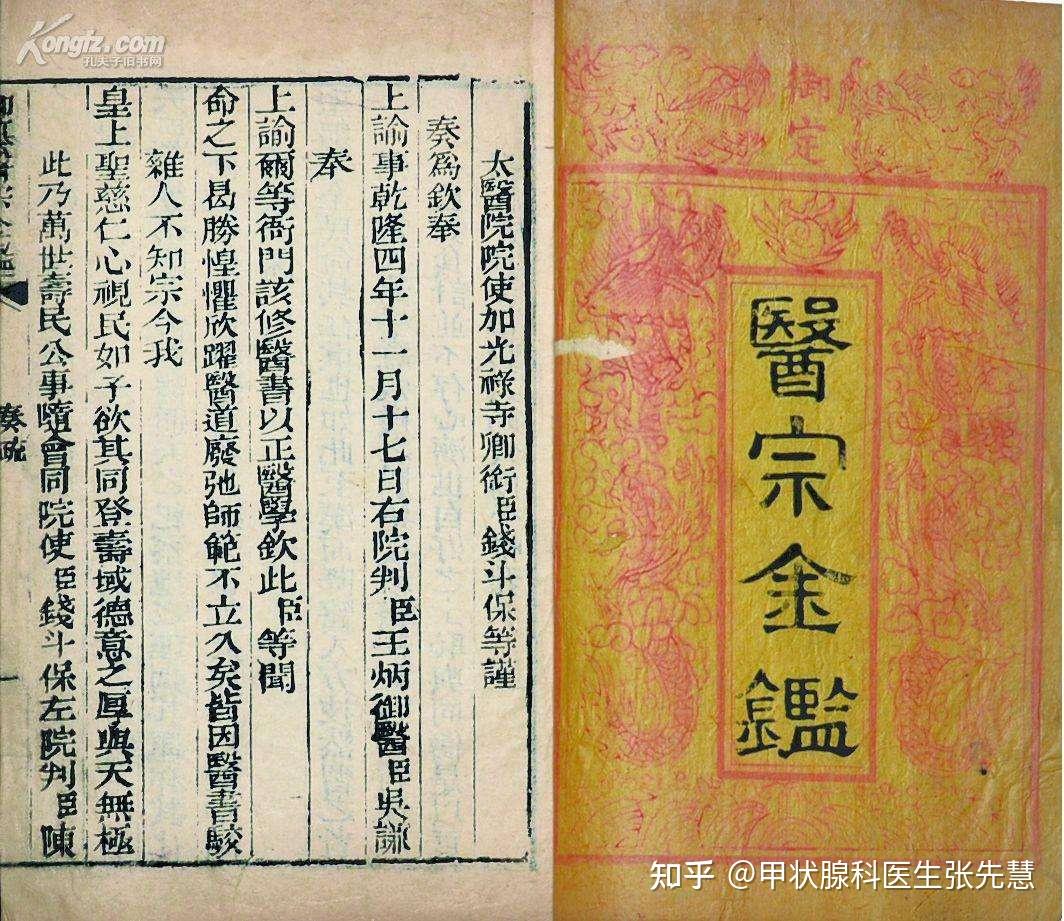 御定
醫宗金鑑
太醫院院使加光祿寺卿銜臣錢斗保等謹
奏爲欽奉
上諭事乾隆四年十一月十七日右院判臣王炳御醫臣吳謙
奉
上諭爾等衙門該修醫書以正醫學欽此臣等聞
命之下曷勝惶懼欣躍醫道廢弛師範不立久矣皆因醫書駮
雜人不知宗今我
皇上聖慈仁心視民如子欲其同登壽域德意之厚與天無極
此乃萬世壽民公事隨會同院使臣錢斗保左院判臣陳
奏疏
Kongfz.com
孔夫子旧书网
知乎 @甲状腺科医生张先慧